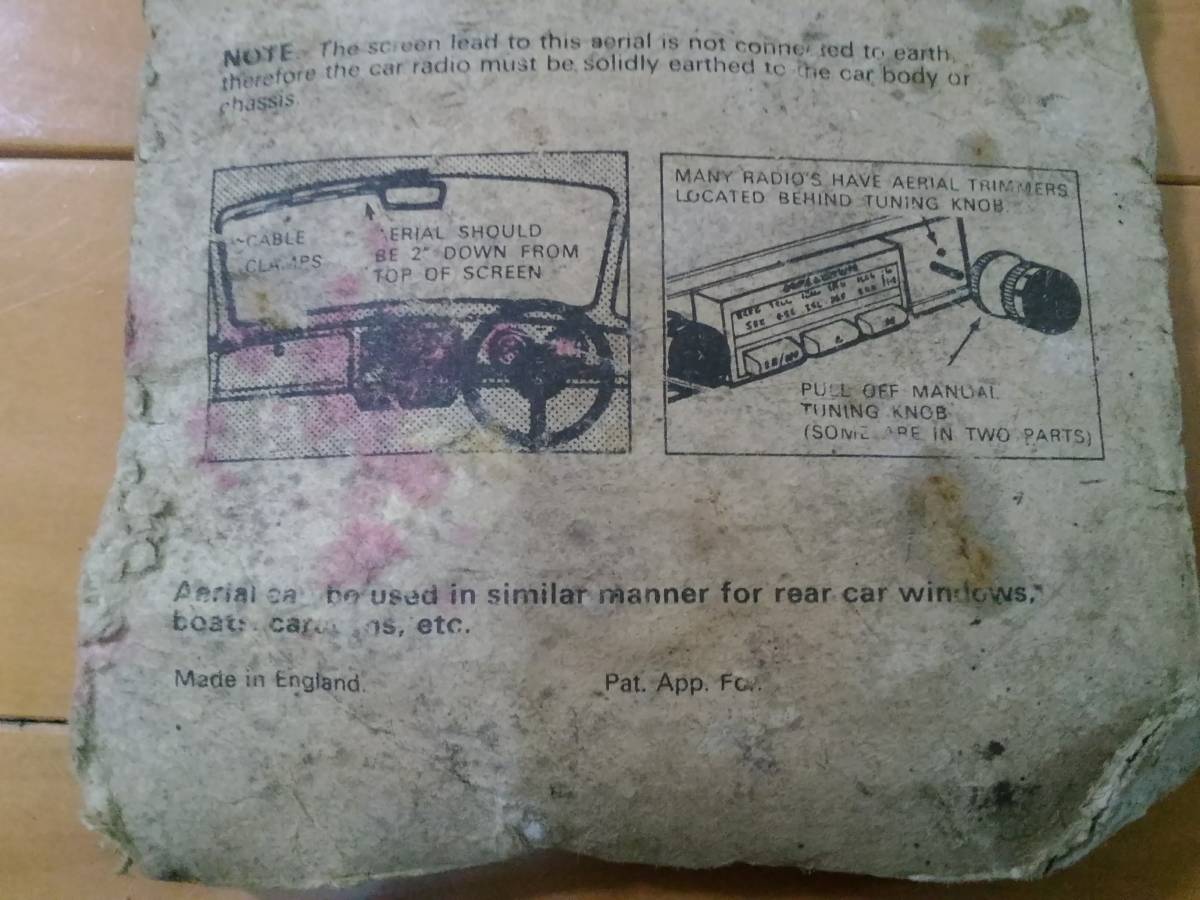 NOTE - The screen lead to this aerial is not connected to earth,
therefore the car radio must be solidly earthed to the car body or
chassis.
CABLE
CLAMPS
AERIAL SHOULD
BE 2" DOWN FROM
TOP OF SCREEN
MANY RADIO'S HAVE AERIAL TRIMMERS
LOCATED BEHIND TUNING KNOB.
PULL OFF MANUAL
TUNING KNOB
(SOME ARE IN TWO PARTS)
Aerial can be used in similar manner for rear car windows,
boats, caravans, etc.
Made in England.
Pat. App. For.